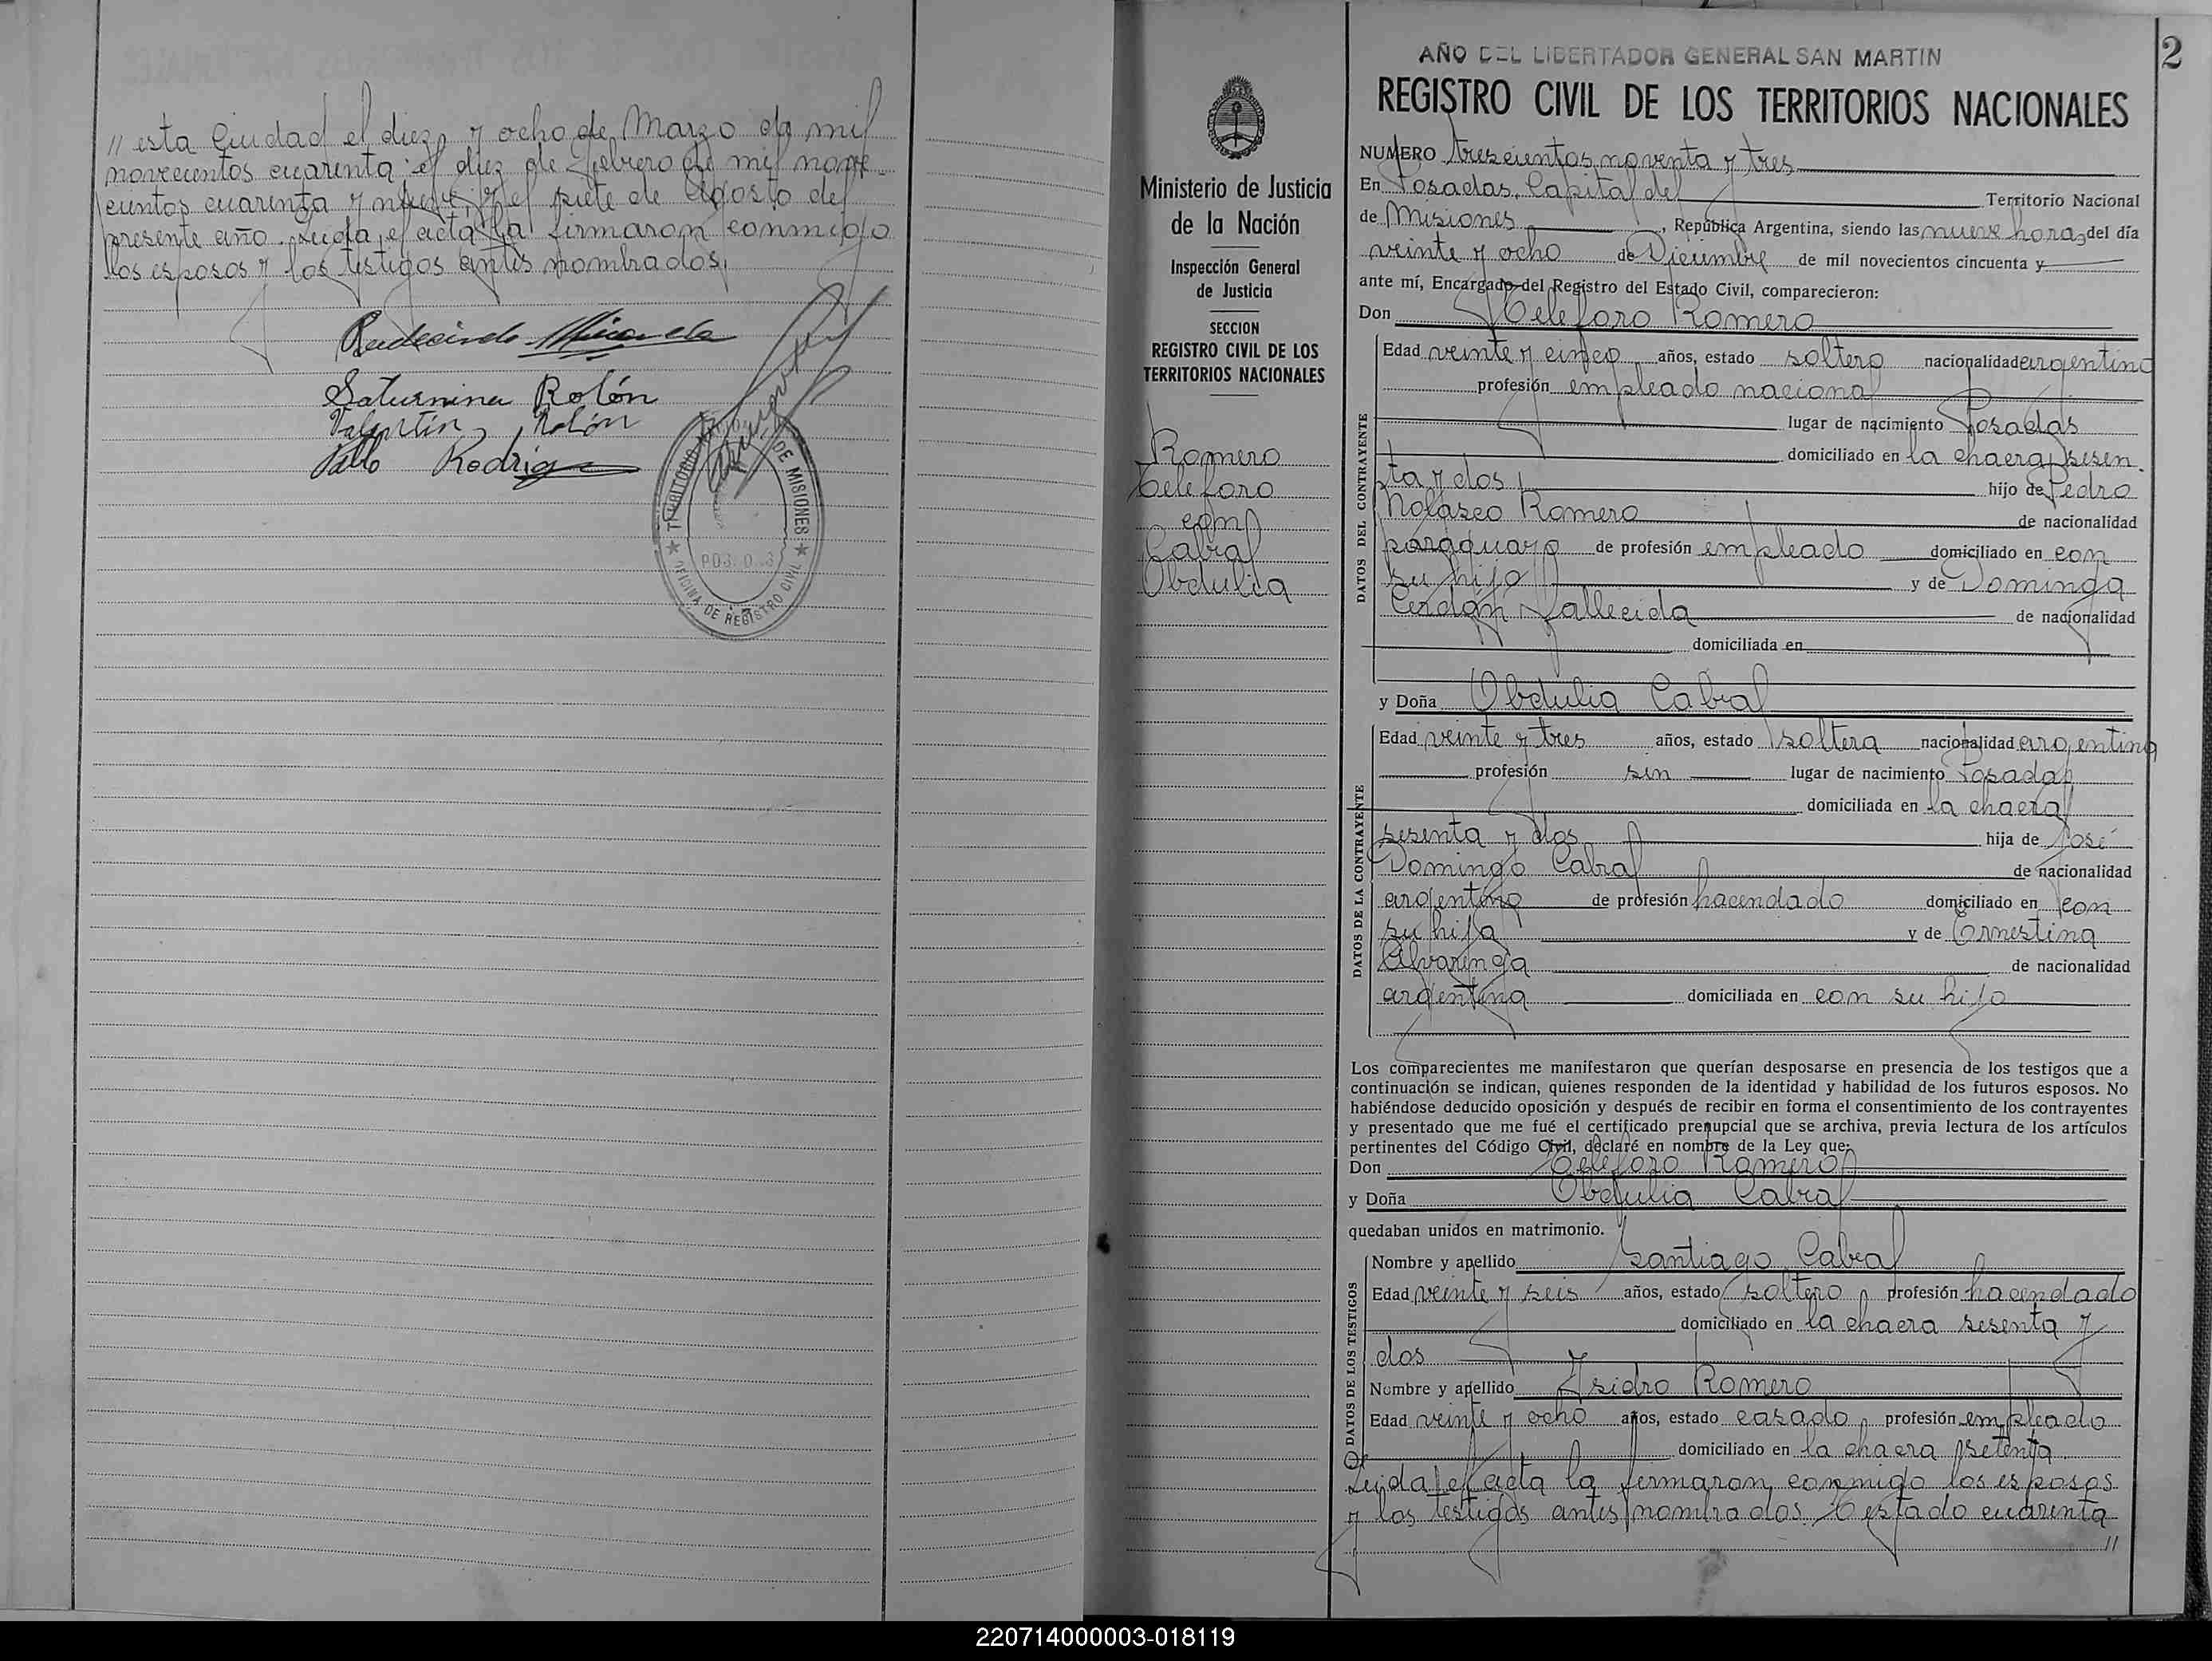 // esta Ciudad el diez y ocho de Marzo de mil
novecientos cuarenta el diez de Febrero de mil nove-
cientos cuarenta y nueve, y el siete de Agosto del
presente año. Leída el acta la firmaron conmigo
los esposos y los testigos antes nombrados.
Rudecindo Miranda
Saturnina Rolón
Valentín Rolón
Pablo Rodrigue
TERRITORIO DE MISIONES
OFICINA DE REGISTRO CIVIL
2
AÑO DEL LIBERTADOR GENERAL SAN MARTIN
REGISTRO CIVIL DE LOS TERRITORIOS NACIONALES
Ministerio de Justicia
de la Nación
Inspección General
de Justicia
SECCION
REGISTRO CIVIL DE LOS
TERRITORIOS NACIONALES
Romero
Teléforo
con
Cabral
Obdulia
NUMERO trescientos noventa y tres
En Posadas, Capital del Territorio Nacional
de Misiones, República Argentina, siendo las nueve horas del día
veinte y ocho de Diciembre de mil novecientos cincuenta y
ante mí, Encargado del Registro del Estado Civil, comparecieron:
Don Teleforo Romero
DATOS DEL CONTRAYENTE
Edad veinte y cinco años, estado soltero nacionalidad argentino
profesión empleado nacional
lugar de nacimiento Posadas
domiciliado en la chacra sesen-
ta y dos hijo de Pedro
Nolasco Romero de nacionalidad
paraguayo de profesión empleado domiciliado en con
su hijo y de Dominga
Cerdán fallecida de nacionalidad
domiciliada en
y Doña Obdulia Cabral
DATOS DE LA CONTRAYENTE
Edad veinte y tres años, estado soltera nacionalidad argentina
profesión sin lugar de nacimiento Posadas
domiciliada en la chacra
sesenta y dos hija de José
Domingo Cabral de nacionalidad
argentino de profesión hacendado domiciliado en con
su hija y de Ernestina
Alvarenga de nacionalidad
argentina domiciliada en con su hijo
Los comparecientes me manifestaron que querían desposarse en presencia de los testigos que a
continuación se indican, quienes responden de la identidad y habilidad de los futuros esposos. No
habiéndose deducido oposición y después de recibir en forma el consentimiento de los contrayentes
y presentado que me fué el certificado prenupcial que se archiva, previa lectura de los artículos
pertinentes del Código Civil, declaré en nombre de la Ley que:
Don Teleforo Romero
y Doña Obdulia Cabral
quedaban unidos en matrimonio.
DATOS DE LOS TESTIGOS
Nombre y apellido Santiago Cabral
Edad veinte y seis años, estado soltero profesión hacendado
domiciliado en la chacra sesenta y
dos
Nombre y apellido Isidro Romero
Edad veinte y ocho años, estado casado profesión empleado
domiciliado en la chacra setenta
Leída el acta la firmaron conmigo los esposos
y los testigos antes nombrados. cuarenta
//
220714000003-018119